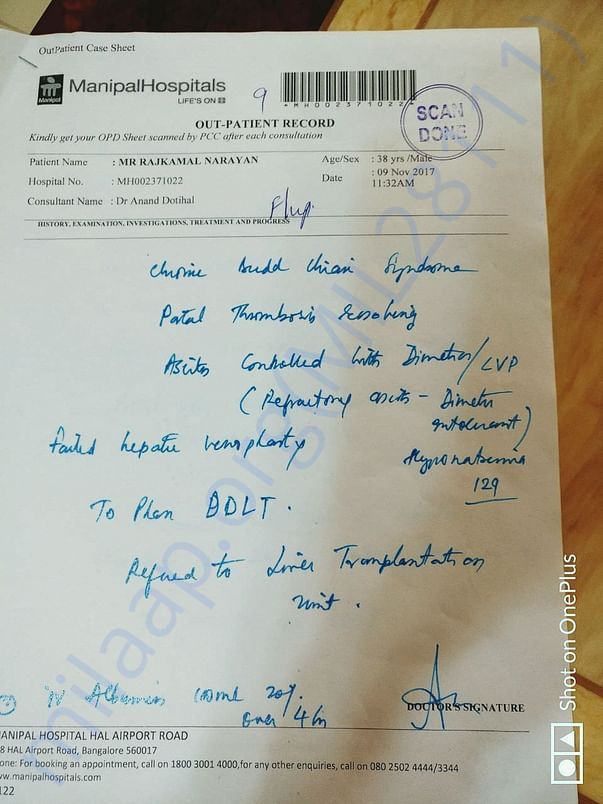 OutPatient Case Sheet
Manipal
ManipalHospitals
LIFE'S ON
9
*MH002371022*
SCAN DONE
OUT-PATIENT RECORD
Kindly get your OPD Sheet scanned by PCC after each consultation
Patient Name : MR RAJKAMAL NARAYAN Age/Sex : 38 yrs /Male
Hospital No. : MH002371022 Date : 09 Nov 2017 11:32AM
Consultant Name : Dr Anand Dotihal
F/up
HISTORY, EXAMINATION, INVESTIGATIONS, TREATMENT AND PROGRESS
Chronic Budd Chiari Syndrome
Portal Thrombosis Resolving
Ascites Controlled with Diuretics/LVP
(Refractory ascites - Diuretic intolerant)
Failed hepatic venoplasty
Hyponatremia
129
To Plan DDLT.
Referred to Liver Transplantation
unit.
IV Albumin 100ml 20%
over 4 hr
DOCTOR'S SIGNATURE
MANIPAL HOSPITAL HAL AIRPORT ROAD
8 HAL Airport Road, Bangalore 560017
one: For booking an appointment, call on 1800 3001 4000,for any other enquiries, call on 080 2502 4444/3344
ww.manipalhospitals.com
122
Shot on OnePlus